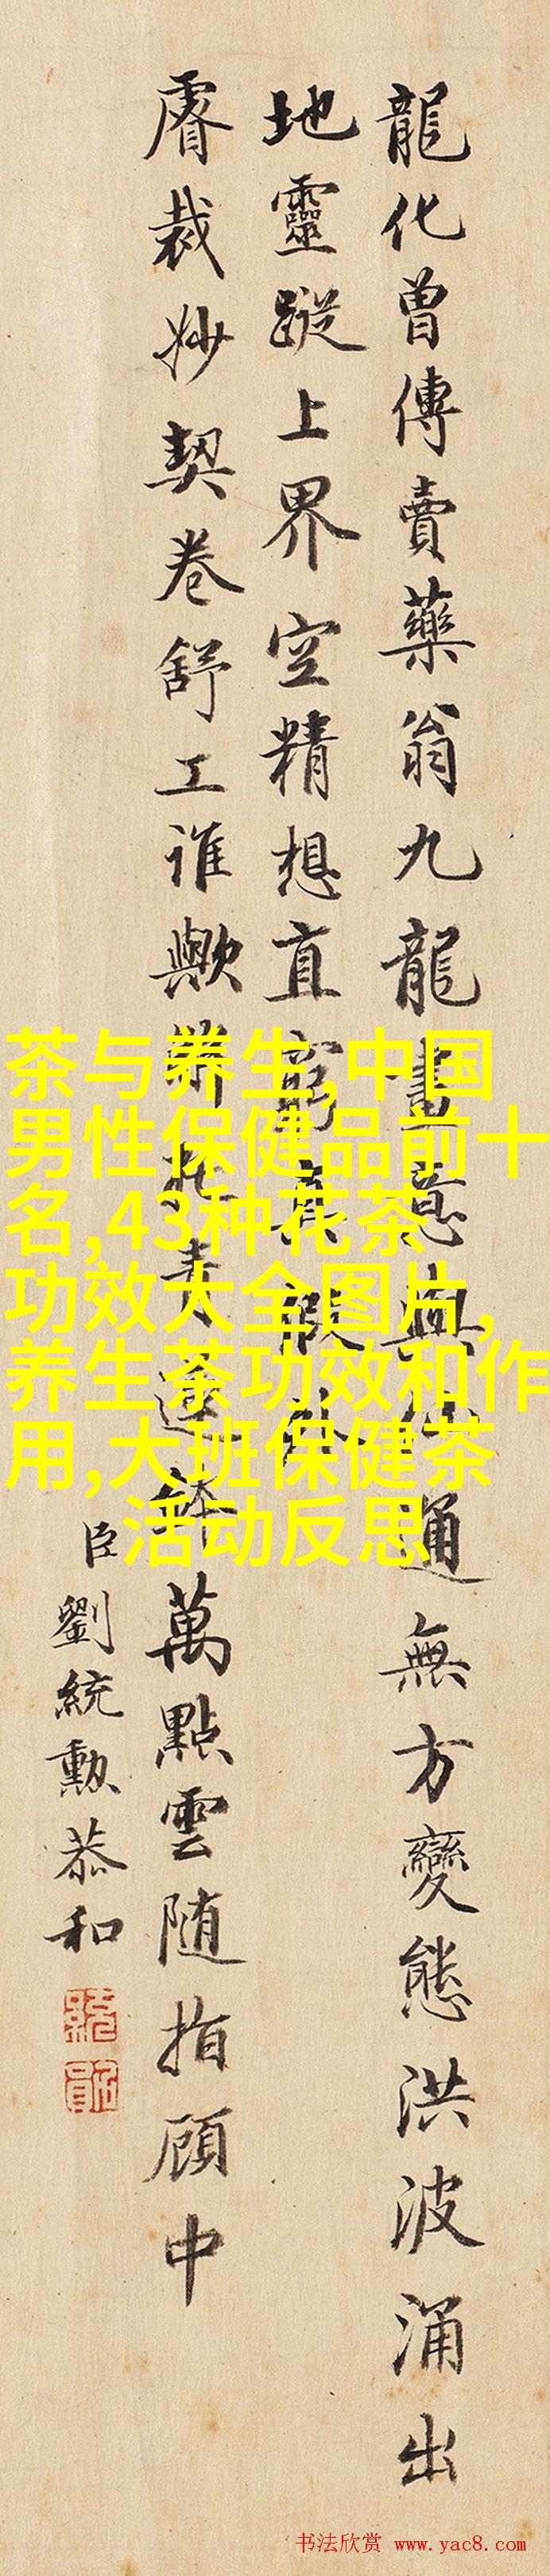 龍化曾傳賣藥翁九龍畫意與通無方變態洪波涌出
地靈蹤上界空精想直窮真假外
睿裁妙契卷舒工誰歟萬點雲随指顧中
臣劉統勳恭和
茶与养生,中国
男性保健品前十
名,43种花茶
功效大全图片,
养生茶功效和作
用,大班保健茶
活动反思
书法欣赏 www.yac8.com